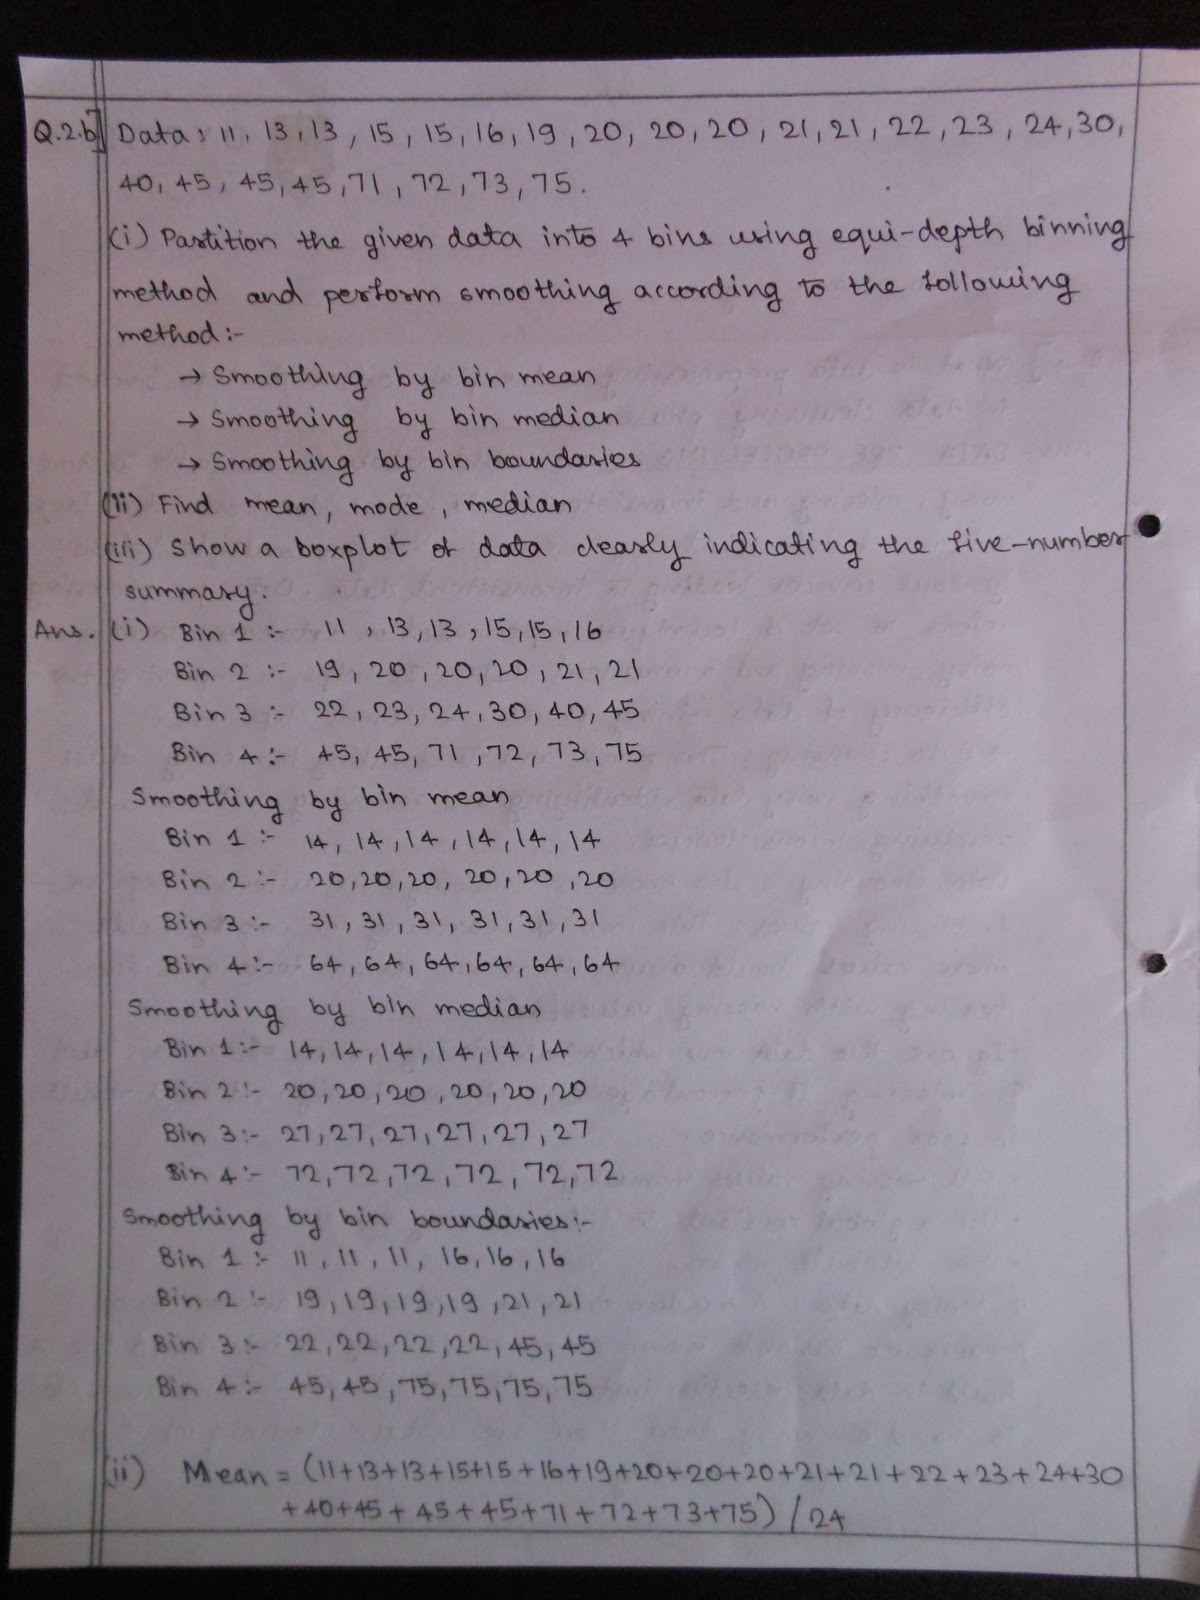 Q.2.b] Data: 11, 13, 13, 15, 15, 16, 19, 20, 20, 20, 21, 21, 22, 23, 24, 30,
40, 45, 45, 45, 71, 72, 73, 75.
(i) Partition the given data into 4 bins using equi-depth binning
method and perform smoothing according to the following
method:-
→ Smoothing by bin mean
→ Smoothing by bin median
→ Smoothing by bin boundaries
(ii) Find mean, mode, median
(iii) Show a boxplot of data clearly indicating the five-number
summary.
Ans. (i) Bin 1 :- 11, 13, 13, 15, 15, 16
Bin 2 :- 19, 20, 20, 20, 21, 21
Bin 3 :- 22, 23, 24, 30, 40, 45
Bin 4 :- 45, 45, 71, 72, 73, 75
Smoothing by bin mean
Bin 1 :- 14, 14, 14, 14, 14, 14
Bin 2 :- 20, 20, 20, 20, 20, 20
Bin 3 :- 31, 31, 31, 31, 31, 31
Bin 4 :- 64, 64, 64, 64, 64, 64
Smoothing by bin median
Bin 1 :- 14, 14, 14, 14, 14, 14
Bin 2 :- 20, 20, 20, 20, 20, 20
Bin 3 :- 27, 27, 27, 27, 27, 27
Bin 4 :- 72, 72, 72, 72, 72, 72
Smoothing by bin boundaries:-
Bin 1 :- 11, 11, 11, 16, 16, 16
Bin 2 :- 19, 19, 19, 19, 21, 21
Bin 3 :- 22, 22, 22, 22, 45, 45
Bin 4 :- 45, 45, 75, 75, 75, 75
(ii) Mean = (11+13+13+15+15+16+19+20+20+20+21+21+22+23+24+30
+40+45+45+45+71+72+73+75) / 24